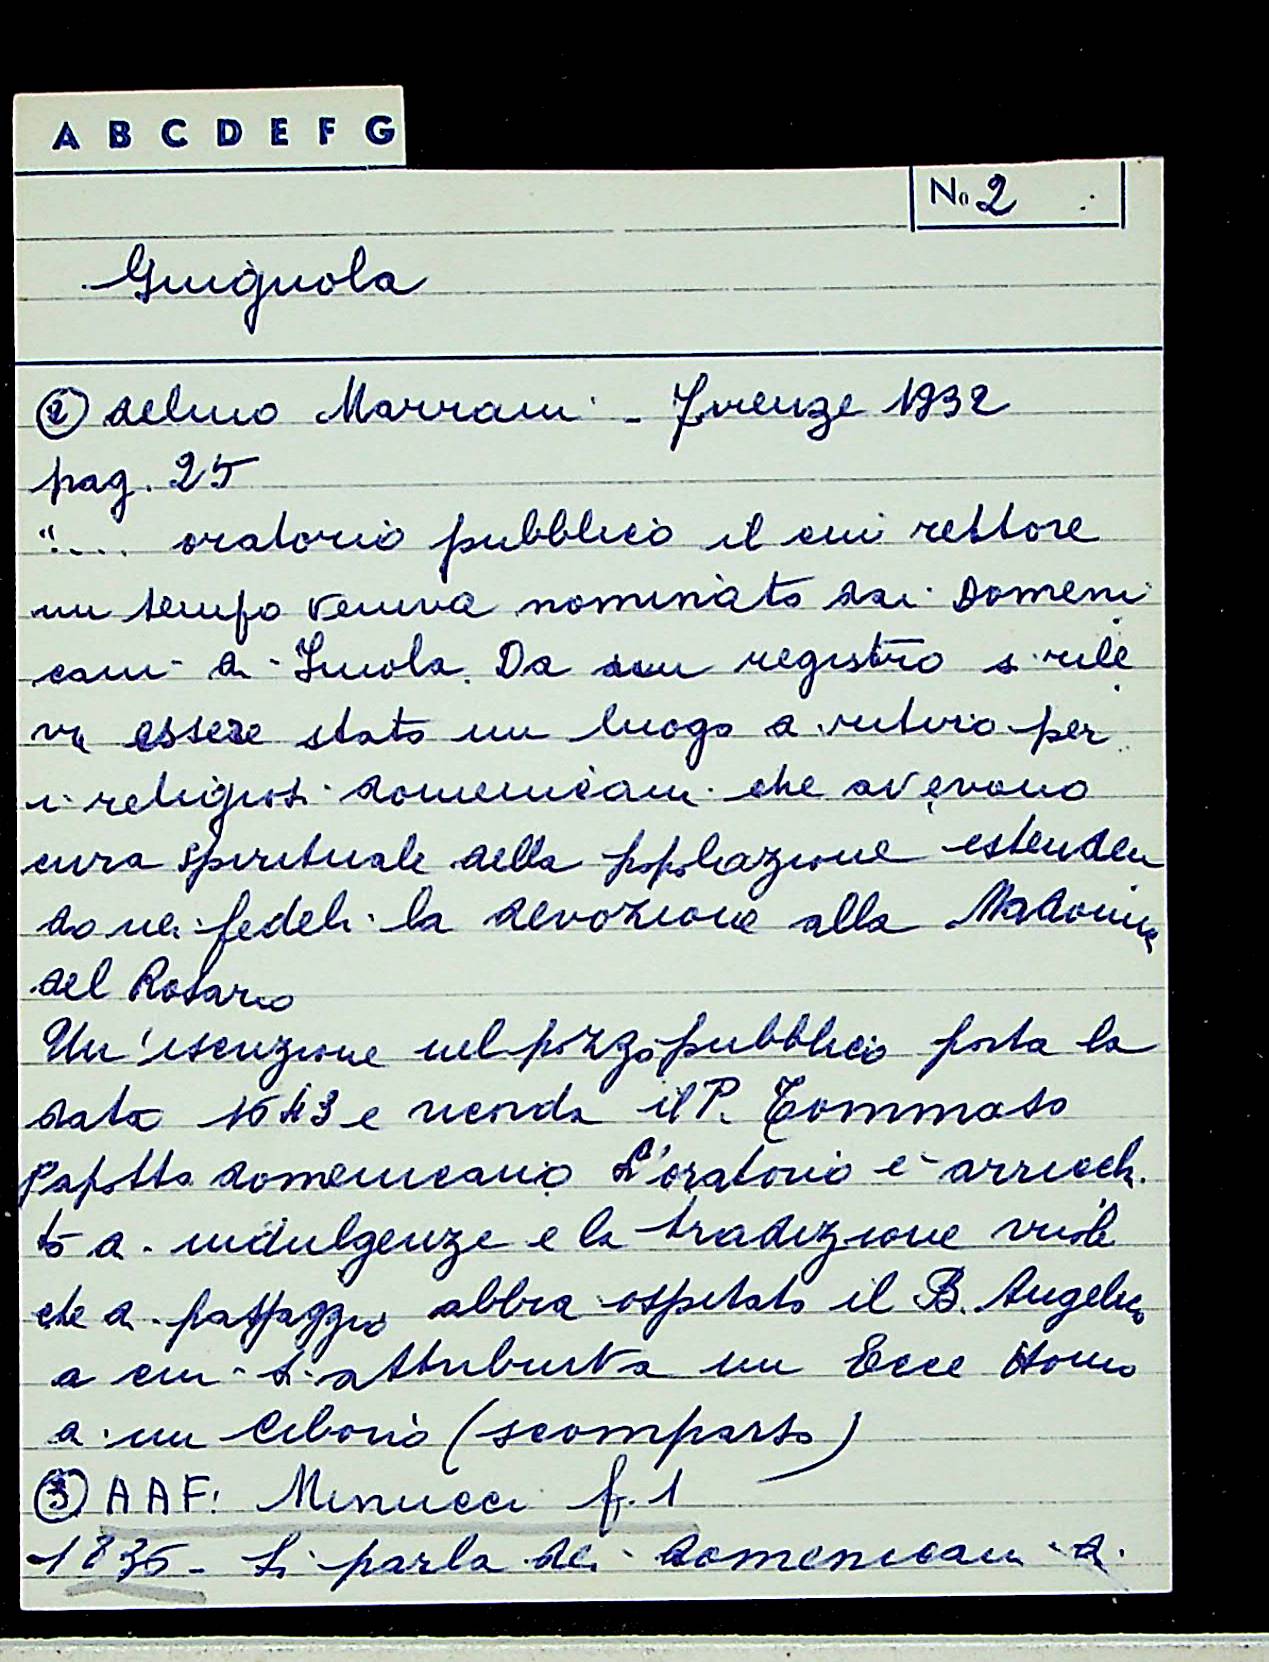 A B C D E F G
No 2
Guignola
② Delmo Marrani - Firenze 1932
pag. 25
".... oratorio pubblico il cui rettore
un tempo veniva nominato dai Domeni
cani di Imola. Da un registro si rile
va essere stato un luogo di ritiro per
i religiosi domenicani che avevano
cura spirituale della popolazione estenden
do nei fedeli la devozione alla Madonna
del Rosario
Un'iscrizione nel pozzo pubblico porta la
data 1643 e ricorda il P. Tommaso
domenicano L'oratorio è arricchi
to di indulgenze e la tradizione vuole
che di passaggio abbia ospitato il B. Angelico
a cui si attribuiva un Ecce Homo
di un Ciborio (scomparso)
③ AAF: Minucci f. 1
1835 - Si parla dei domenicani di